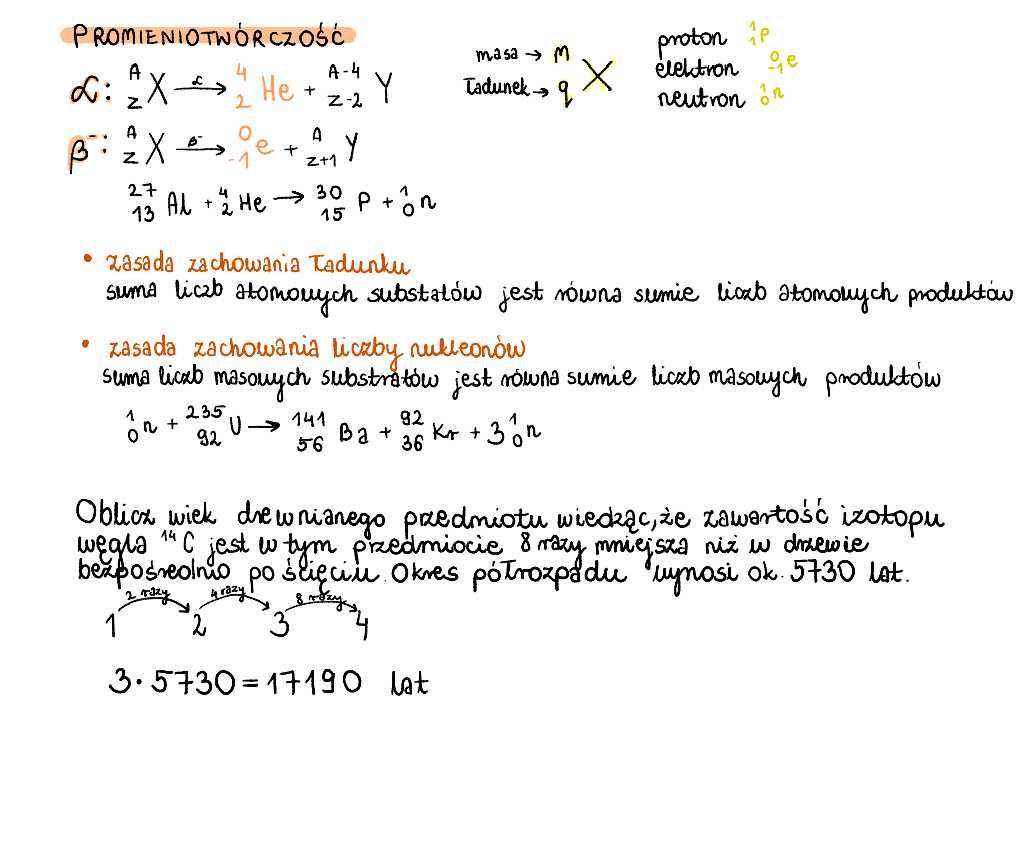 PROMIENIOTWÓRCZOŚĆ
masa → m
ładunek → q X
proton ¹₁p
elektron ⁰₋₁e
neutron ¹₀n
α: ᴬ_Z X —α→ ⁴₂He + ᴬ⁻⁴_Z-2 Y
β⁻: ᴬ_Z X —β⁻→ ⁰₋₁e + ᴬ_Z+1 Y
²⁷₁₃Al + ⁴₂He → ³⁰₁₅P + ¹₀n
• zasada zachowania ładunku
suma liczb atomowych substatów jest równa sumie liczb atomowych produktów
• zasada zachowania liczby nukleonów
suma liczb masowych substratów jest równa sumie liczb masowych produktów
¹₀n + ²³⁵₉₂U → ¹⁴¹₅₆Ba + ⁹²₃₆Kr + 3 ¹₀n
Oblicz wiek drewnianego przedmiotu wiedząc, że zawartość izotopu
węgla ¹⁴C jest w tym przedmiocie 8 razy mniejsza niż w drzewie
bezpośrednio po ścięciu. Okres półrozpadu wynosi ok. 5730 lat.
2 razy 4 razy 8 razy
1 2 3 4
3 · 5730 = 17190 lat